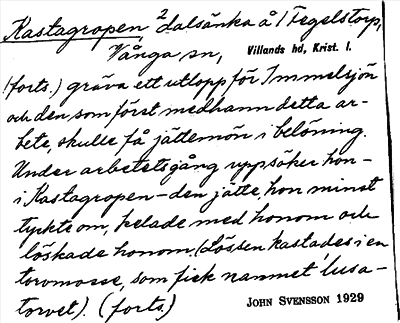 Kastagropen, 2 dalsänka å 1 Fegelstorp,
Vånga sn, Villands hd, Krist. l.
(forts.) gräva ett utlopp för Immelsjön
och den, som först medhann detta ar-
bete, skulle få jättemön i belöning.
Under arbetets gång uppsöker hon -
i Kastagropen - den jätte, hon minst
tyckte om, kelade med honom och
löskade honom. (Lössen kastades i en
torvmosse, som fick namnet "lusa-
torvet). (forts.)
JOHN SVENSSON 1929